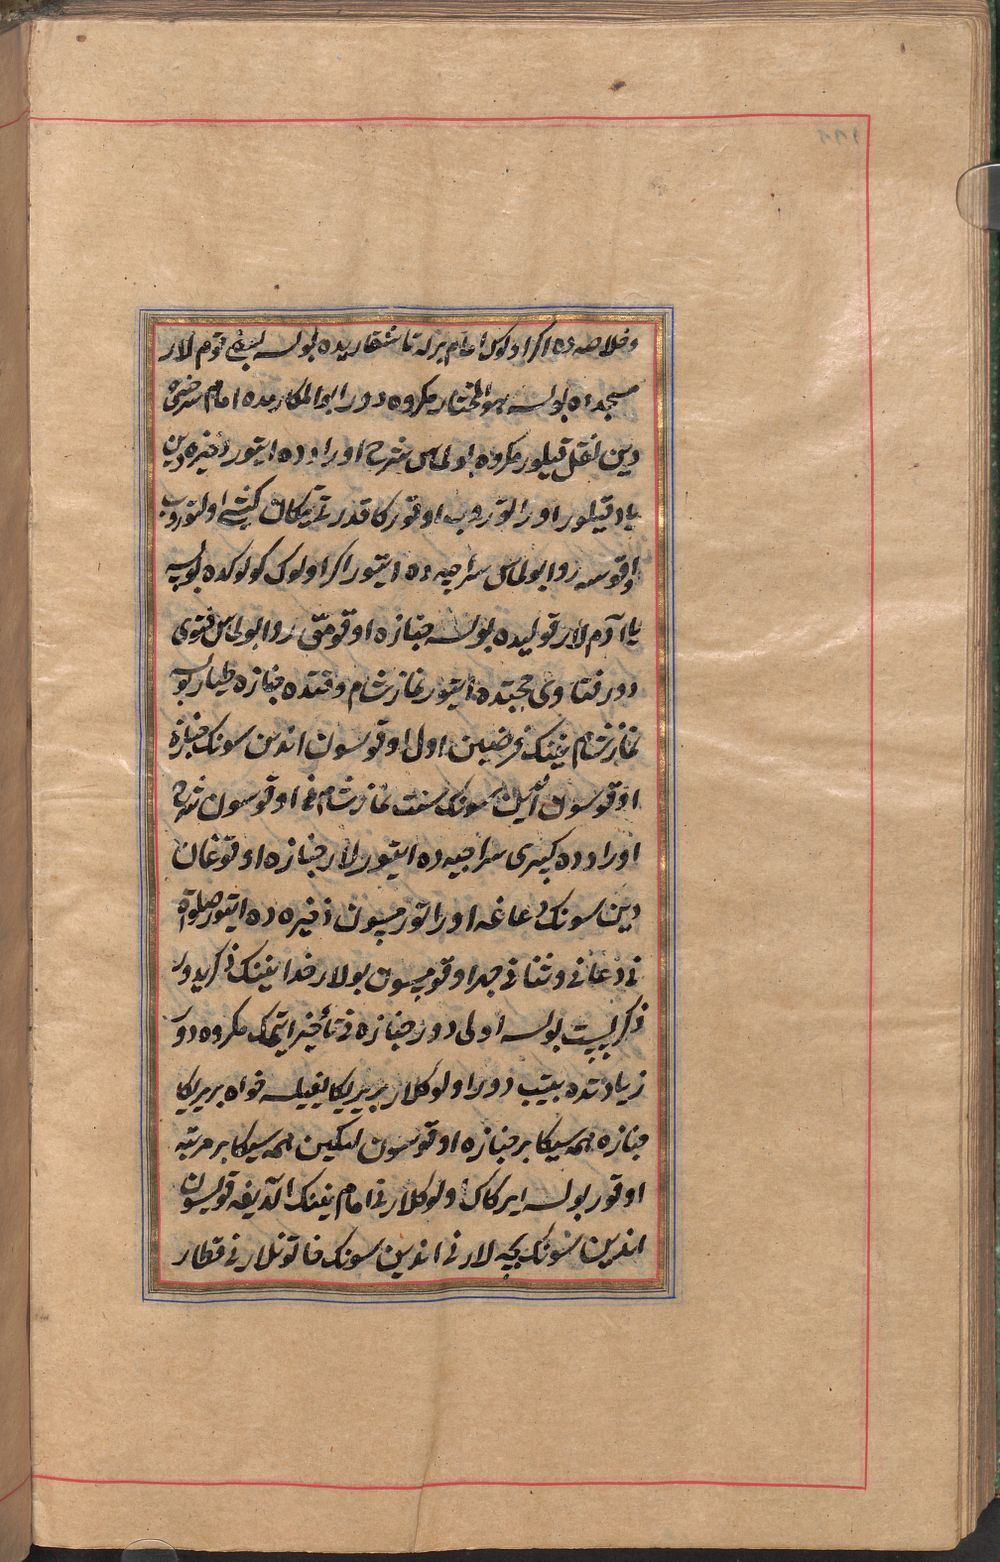 وخلاصه ده اکر اولوک امام برله تاشقاریده بولسه بعضی قوم لار
مسجدده بولسه هوالمختار مکروه دور ابوالمکارمده امام سرخسی
دین نقل قیلور مکروه بولماس شرح اوراد ده ایتور ذخیره دین
یاد قیلور اولتوروب اوقورکا قدرتی یتکان کیشی اولتوروب
اوقوسه روا بولماس سراجیه ده ایتور اکر اولوک کولوکده بولسه
یا آدم لار قولیده بولسه جنازه اوقومق روا بولماس فتوی
دور فتاوی حجتده ایتور نماز شام وقتده جنازه طیار بولسه
نماز شام نینک فرضین اول اوقوسون اندین سونک جنازه
اوقوسون آندین سونک سنت نماز شام نی اوقوسون شرح
اوراد ده کبری سراجیه ده ایتورلار جنازه اوقوغان
دین سونک دعاغه اولتورمسون ذخیره ده ایتور صلوة
نی دعا نی وثنا نی جهر اوقومسون بولار خدا نینک ذکریدور
ذکر پست بولسه اولی دور جنازه نی تأخیر ایتمک مکروه دور
زیادتده یتیب دور اولوکلار بریریکا ییغیلسه خواه بریریکا
جنازه همه سیکا بر جنازه اوقوسون لیکن همه سیکا بر مرتبه
اوقور بولسه ایرکاک اولوکلار نی امام نینک آلدیغه قویسون
اندین سونک بچه لار نی اندین سونک خاتونلار نی قطار